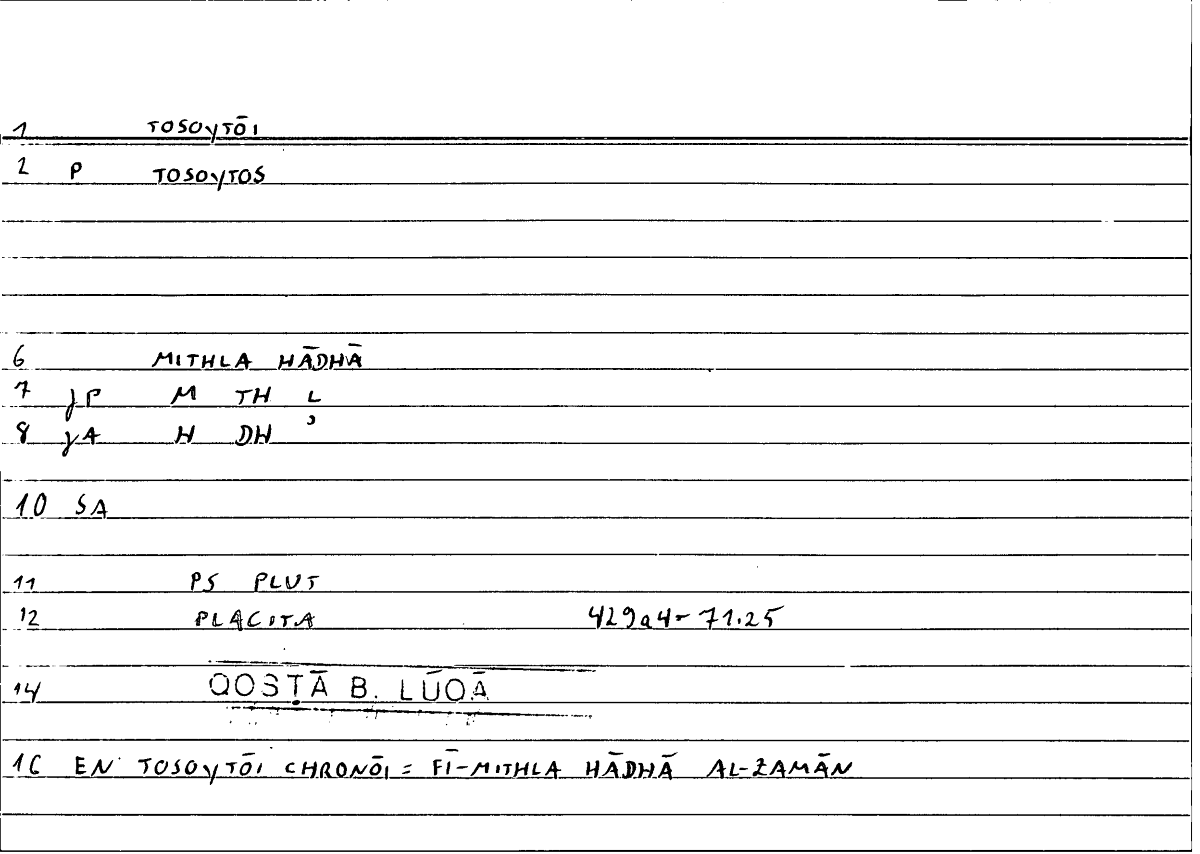 1 TOSOYTŌI
2 P TOSOYTOS
6 MITHLA HĀDHĀ
7 JP M TH L
8 JA H DH ʾ
10 SA
11 PS PLUT
12 PLACITA 429a4-71.25
14 QOSṬĀ B. LŪQĀ
16 EN TOSOYTŌI CHRONŌI = FĪ-MITHLA HĀDHĀ AL-ZAMĀN